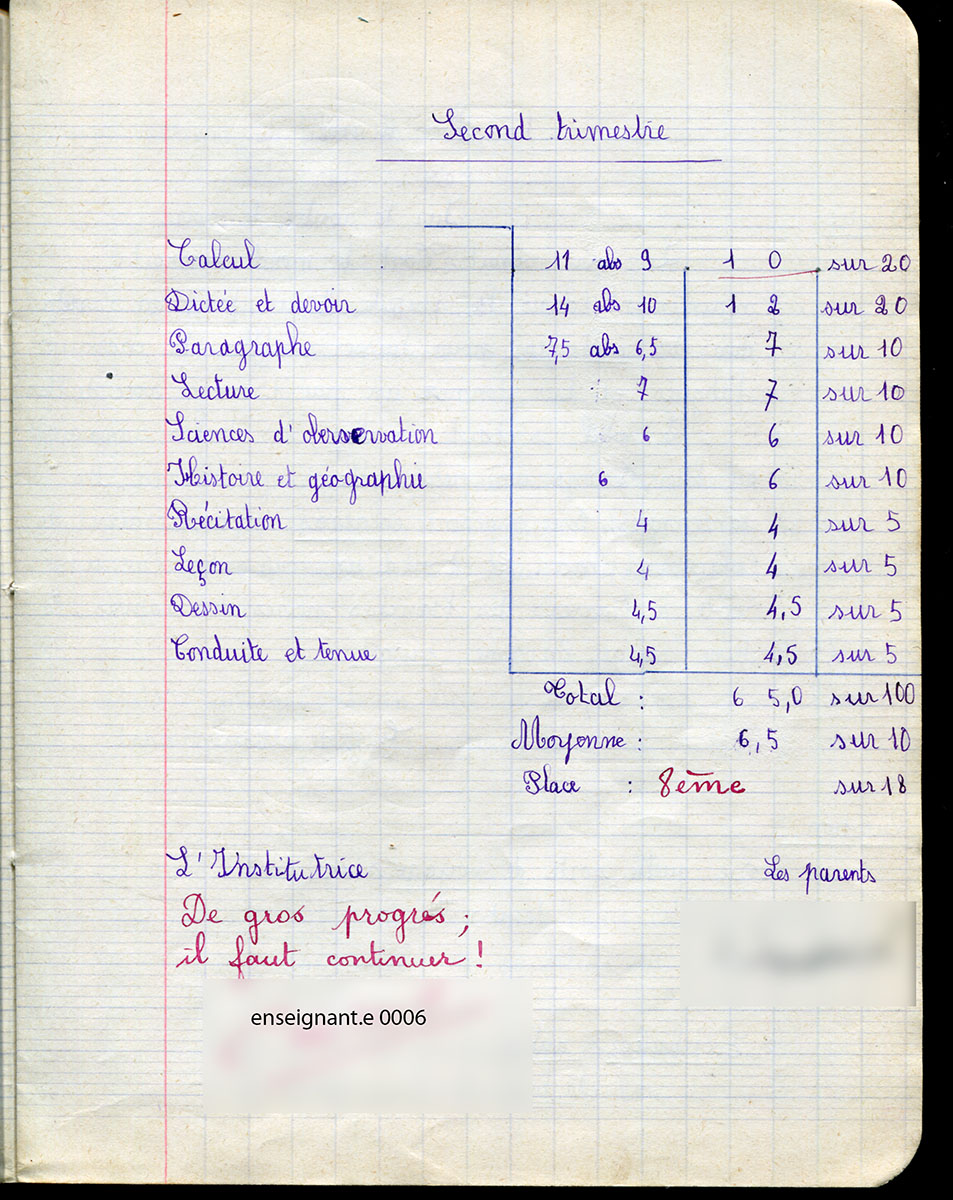 Second trimestre
Calcul 11 abs 9 10 sur 20
Dictée et devoir 14 abs 10 12 sur 20
Paragraphe 7,5 abs 6,5 7 sur 10
Lecture 7 7 sur 10
Sciences d'oberservation 6 6 sur 10
Histoire et géographie 6 6 sur 10
Récitation 4 4 sur 5
Leçon 4 4 sur 5
Dessin 4,5 4,5 sur 5
Conduite et tenue 4,5 4,5 sur 5
Total : 65,0 sur 100
Moyenne : 6,5 sur 10
Place : 8ème sur 18
L'Institutrice Les parents
De gros progrès ;
il faut continuer !
enseignant.e 0006